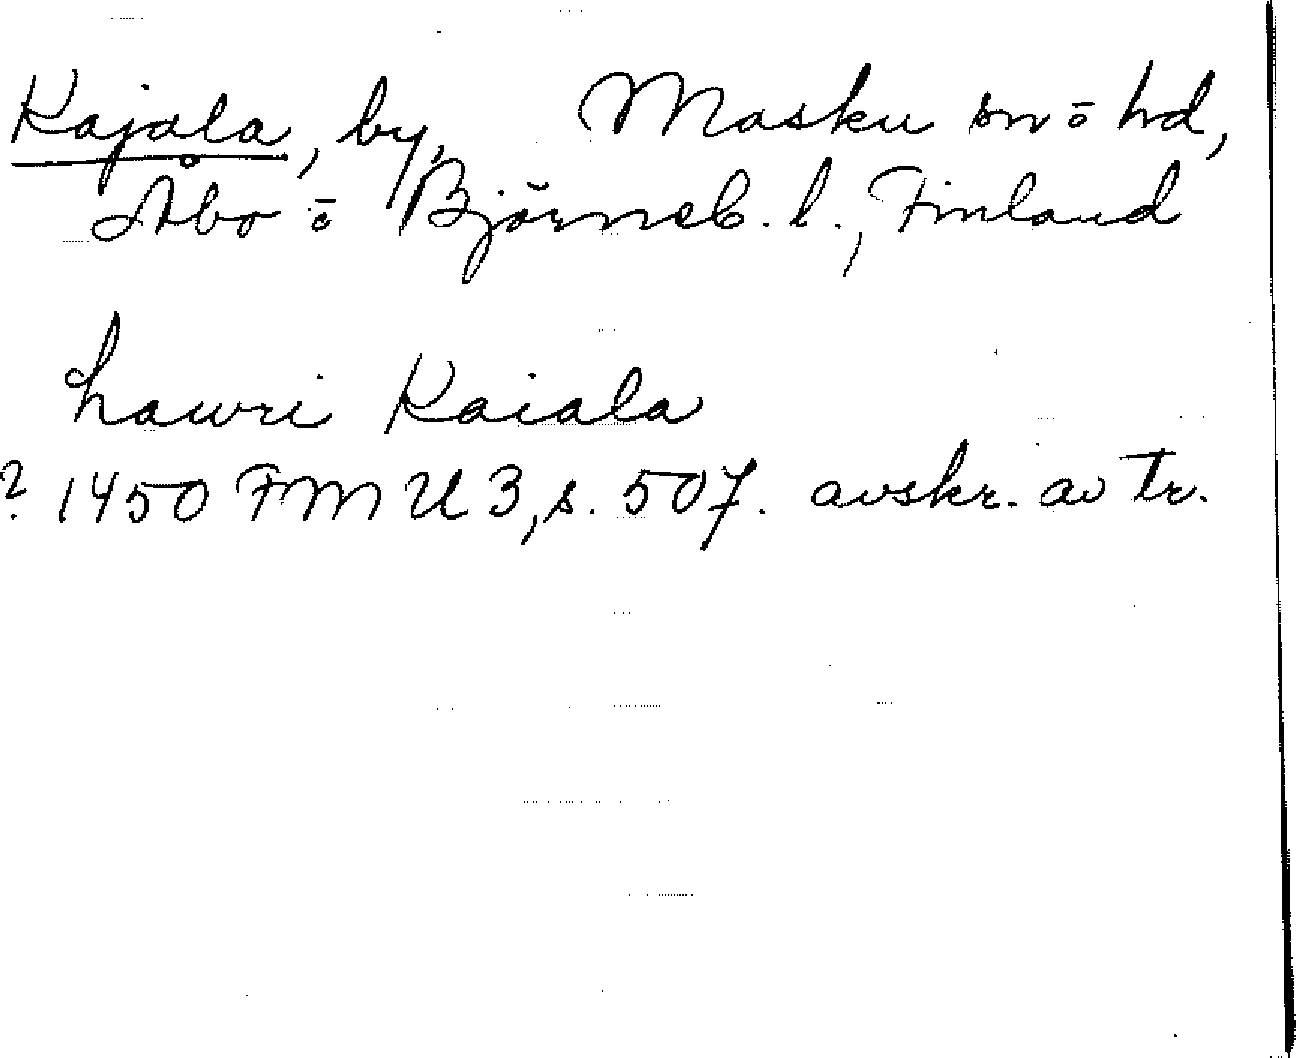 Kajala, by, Masku sn ō hd,
Åbo ō Björneb. l., Finland
Lawri Kaiala
? 1450 FMU 3, s. 507. avskr. av tr.